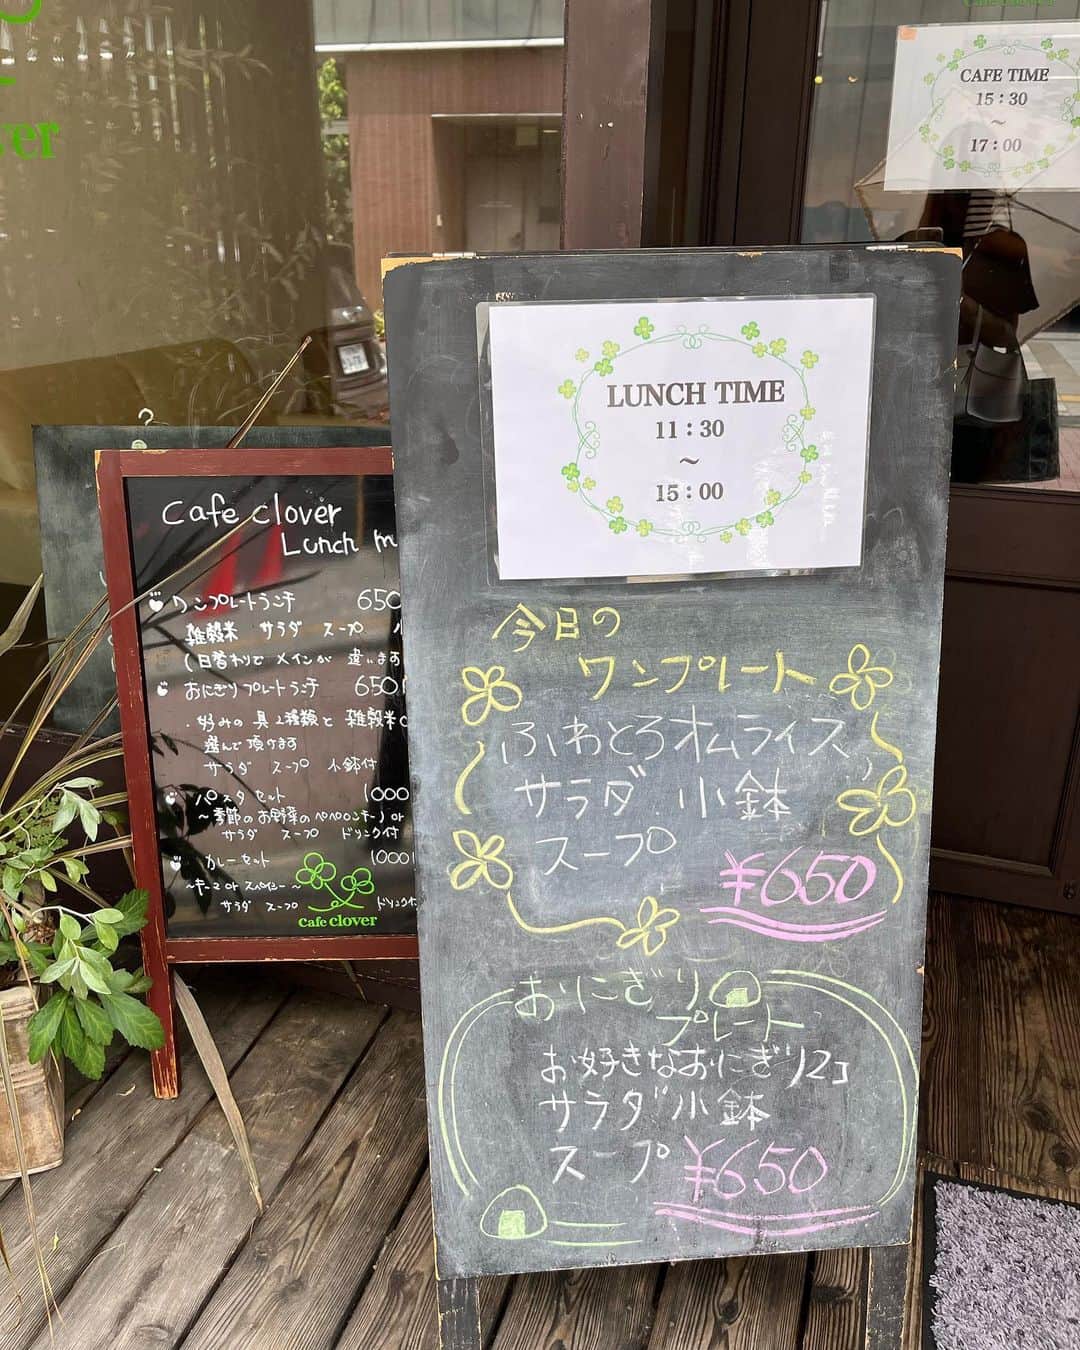 ver
Cafe clover
CAFE TIME
15:30
～
17:00
LUNCH TIME
11:30
～
15:00
今日の
ワンプレート
ふわとろオムライス
サラダ 小鉢
スープ
¥650
おにぎり
プレート
お好きなおにぎり2コ
サラダ 小鉢
スープ ¥650
cafe clover
Lunch m
ワンプレートランチ 650
雑穀米 サラダ スープ 小
(日替わりで メインが 違います
おにぎりプレートランチ 650
・好みの具2種類と 雑穀米
選んで頂けます
サラダ スープ 小鉢付
パスタセット 1000
～季節のお野菜のペペロンチーノ or
サラダ スープ ドリンク付
カレーセット 1000
～キーマ or スパイシー～
サラダ スープ ドリンク付
cafe clover